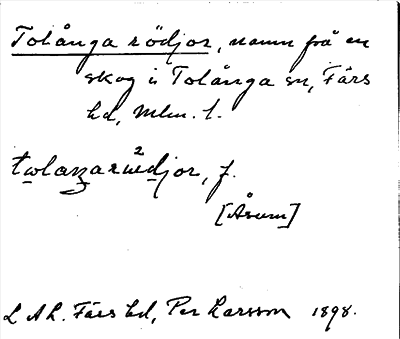 Tolånga rödjor, namn frå en
skog i Tolånga sn, Färs
hd, Mlm. l.
f.
[Åsum]
L A h. Färs hd, Per Larsson 1898.